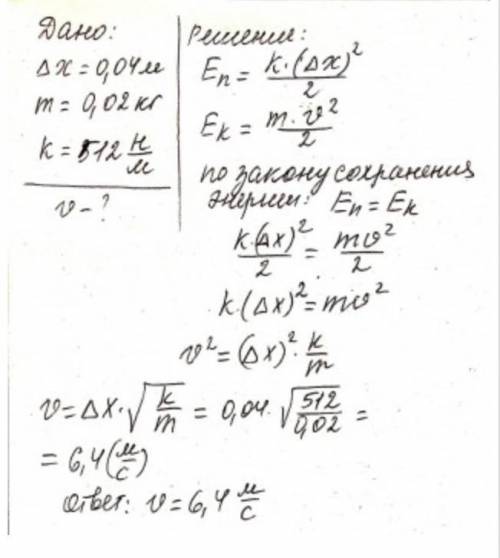 Дано:
Δx = 0,04 м
m = 0,02 кг
k = 512 Н/м
v - ?
Решение:
Eп = k·(Δx)²/2
Eк = m·v²/2
по закону сохранения
энергии: Eп = Eк
k·(Δx)²/2 = mv²/2
k·(Δx)² = mv²
v² = (Δx)²·k/m
v = Δx·√(k/m) = 0,04·√(512/0,02) =
= 6,4 (м/с)
Ответ: v = 6,4 м/с